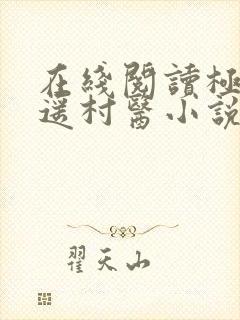 在綫閱讀極
遥村醫小説
翟天山